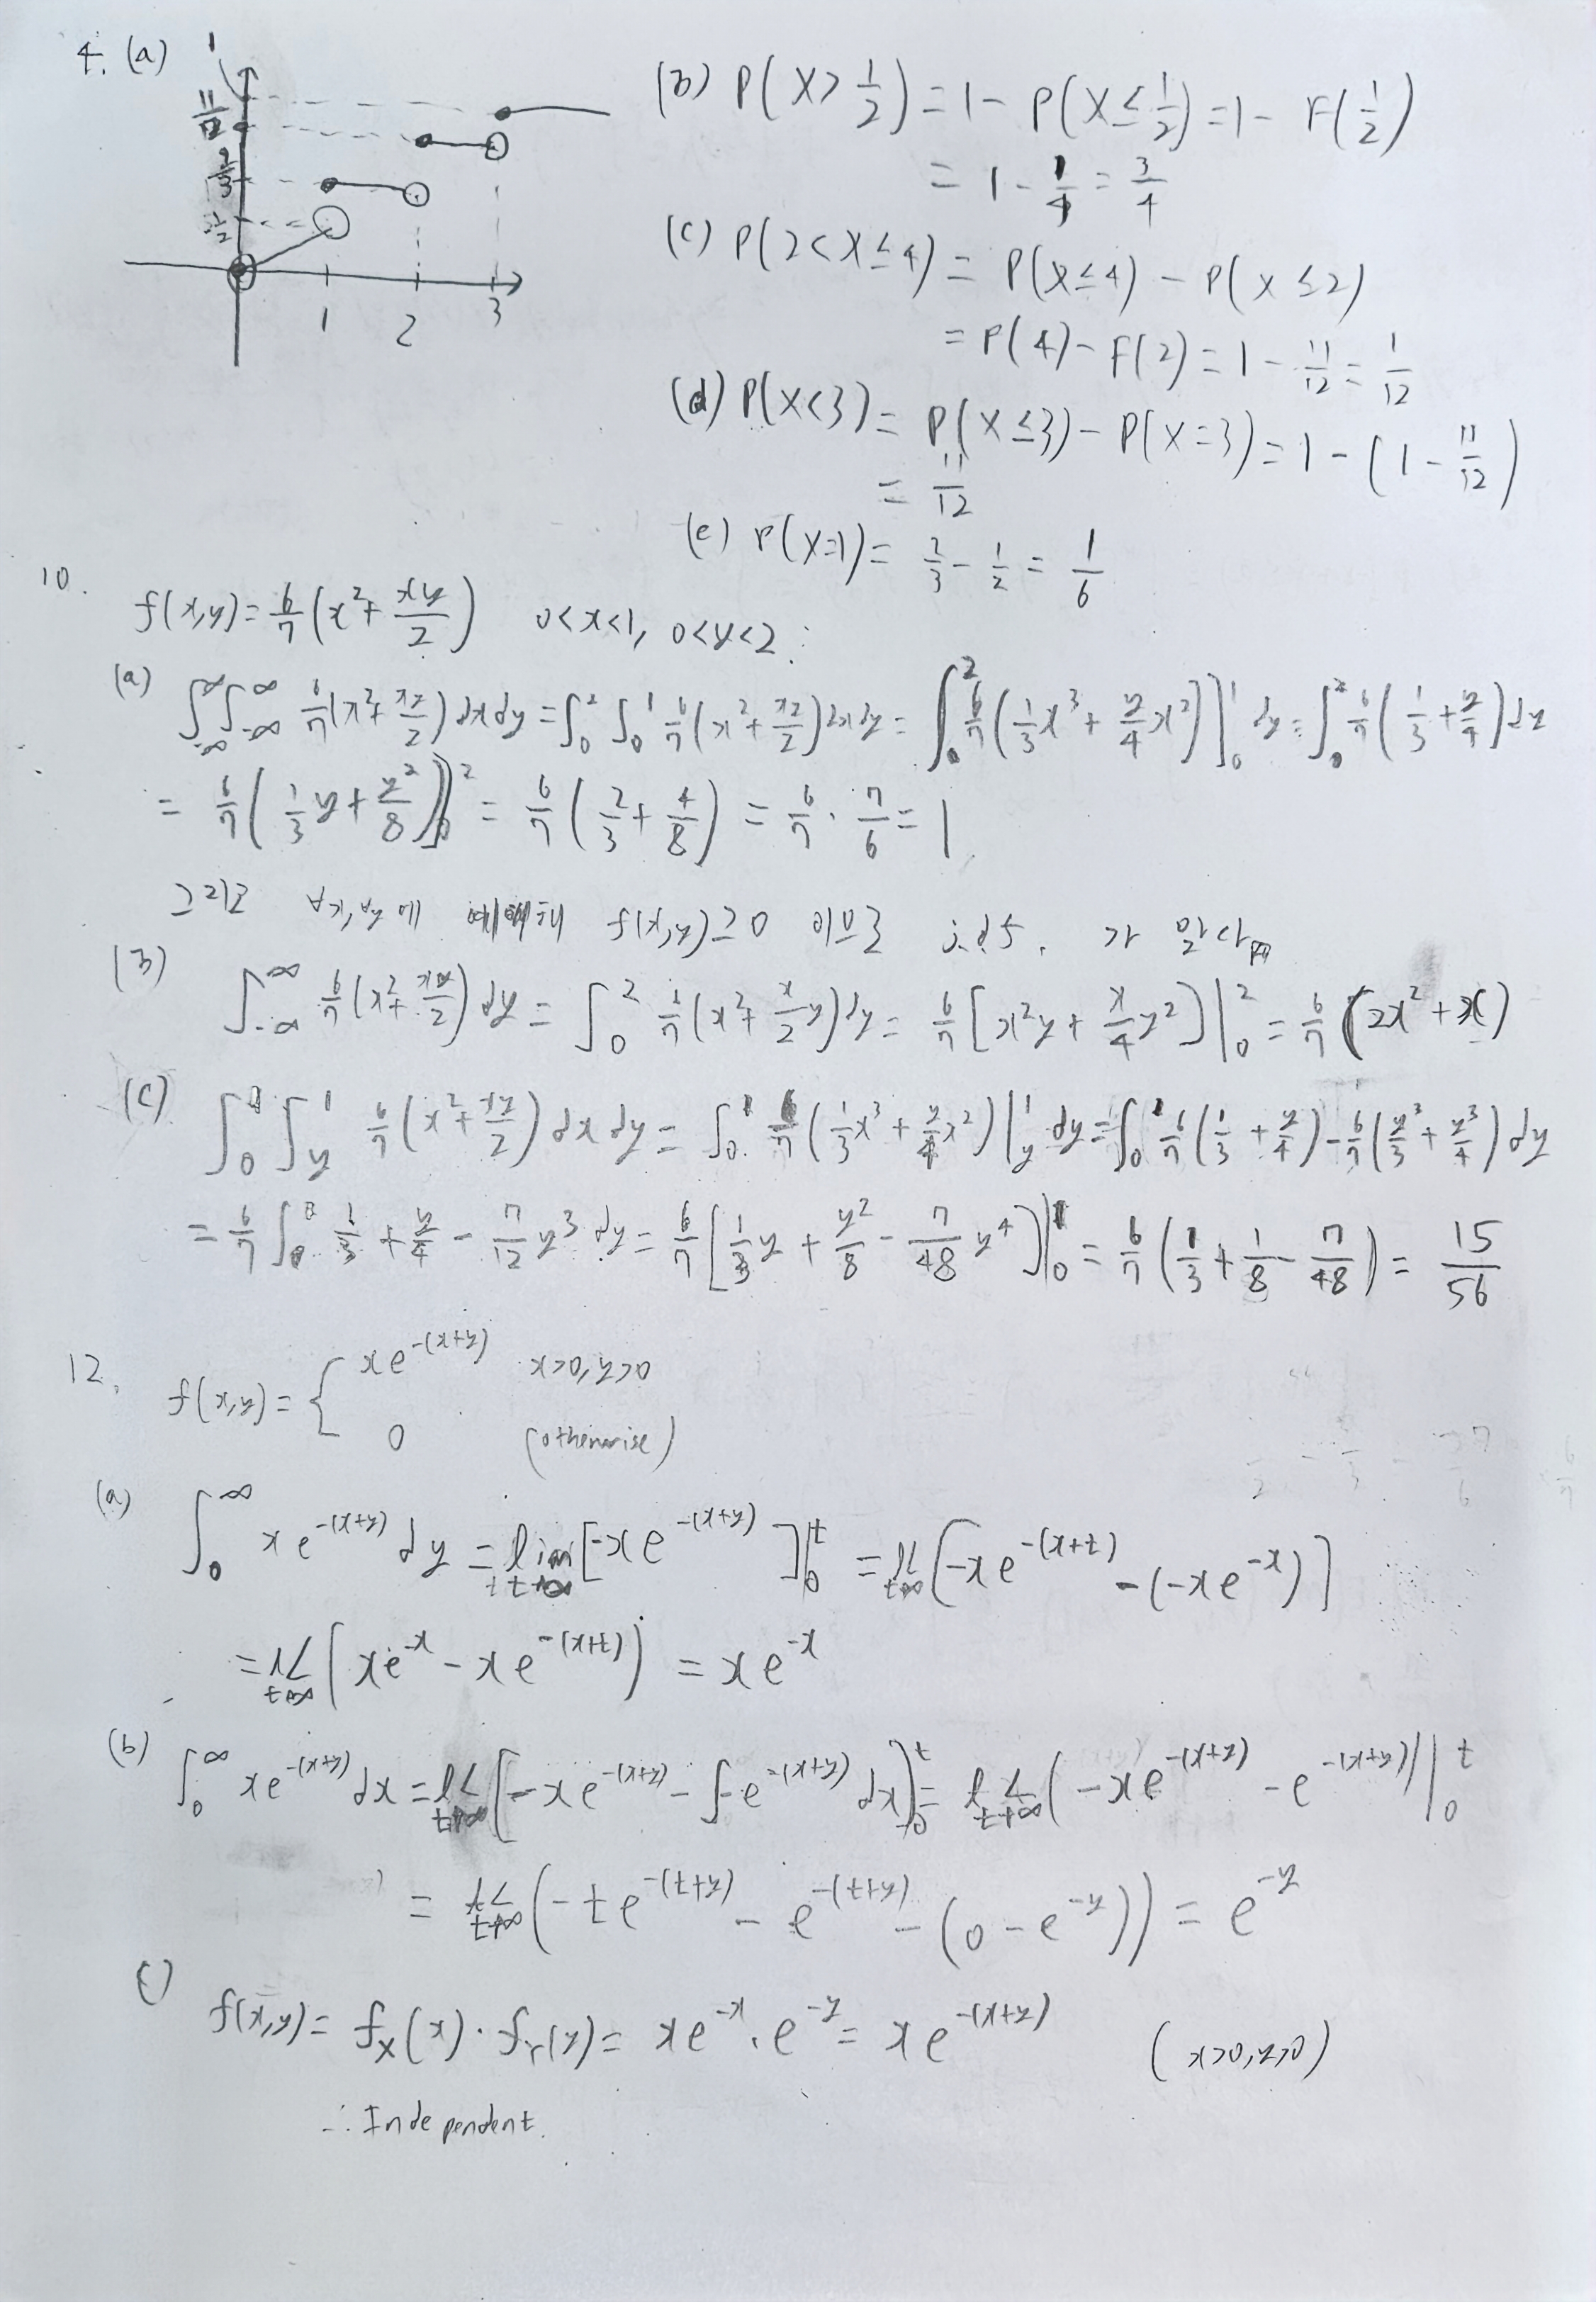 4. (a)
1
11/12
2/3
1/2
1 2 3
(b) P(X > 1/2) = 1 - P(X ≤ 1/2) = 1 - F(1/2)
= 1 - 1/4 = 3/4
(c) P(2 < X ≤ 4) = P(X ≤ 4) - P(X ≤ 2)
= F(4) - F(2) = 1 - 11/12 = 1/12
(d) P(X < 3) = P(X ≤ 3) - P(X = 3) = 1 - (1 - 11/12)
= 11/12
(e) P(X = 1) = 2/3 - 1/2 = 1/6
10.
f(x,y) = 6/7 (x² + xy/2) 0 < x < 1, 0 < y < 2
(a) ∫_{-∞}^{∞} ∫_{-∞}^{∞} 6/7 (x² + xy/2) dx dy = ∫_0^2 ∫_0^1 6/7 (x² + xy/2) dx dy = ∫_0^2 6/7 (1/3 x³ + y/4 x²) ]_0^1 dy = ∫_0^2 6/7 (1/3 + y/4) dy
= 6/7 (1/3 y + y²/8) ]_0^2 = 6/7 (2/3 + 4/8) = 6/7 · 7/6 = 1
그리고 ∀x, ∀y 에 f(x,y) ≥ 0 이므로 j.d.f. 가 맞다
(b) ∫_{-∞}^{∞} 6/7 (x² + xy/2) dy = ∫_0^2 6/7 (x² + x/2 y) dy = 6/7 [x²y + x/4 y²] |_0^2 = 6/7 (2x² + x)
(c) ∫_0^1 ∫_y^1 6/7 (x² + xy/2) dx dy = ∫_0^1 6/7 (1/3 x³ + y/4 x²) |_y^1 dy = ∫_0^1 6/7 (1/3 + y/4) - 6/7 (y³/3 + y³/4) dy
= 6/7 ∫_0^1 1/3 + y/4 - 7/12 y³ dy = 6/7 [1/3 y + y²/8 - 7/48 y⁴] |_0^1 = 6/7 (1/3 + 1/8 - 7/48) = 15/56
12.
f(x,y) = { xe^{-(x+y)} x>0, y>0
0 (otherwise)
(a) ∫_0^∞ x e^{-(x+y)} dy = lim_{t→∞} [-x e^{-(x+y)}] |_0^t = lim_{t→∞} [-x e^{-(x+t)} - (-x e^{-x})]
= lim_{t→∞} (x e^{-x} - x e^{-(x+t)}) = x e^{-x}
(b) ∫_0^∞ x e^{-(x+y)} dx = lim_{t→∞} [-x e^{-(x+y)} - ∫ -e^{-(x+y)} dx]_0^t = lim_{t→∞} (-x e^{-(x+y)} - e^{-(x+y)}) |_0^t
= lim_{t→∞} (-t e^{-(t+y)} - e^{-(t+y)} - (0 - e^{-y})) = e^{-y}
(c)
f(x,y) = f_X(x) · f_Y(y) = x e^{-x} · e^{-y} = x e^{-(x+y)} (x>0, y>0)
∴ Independent.